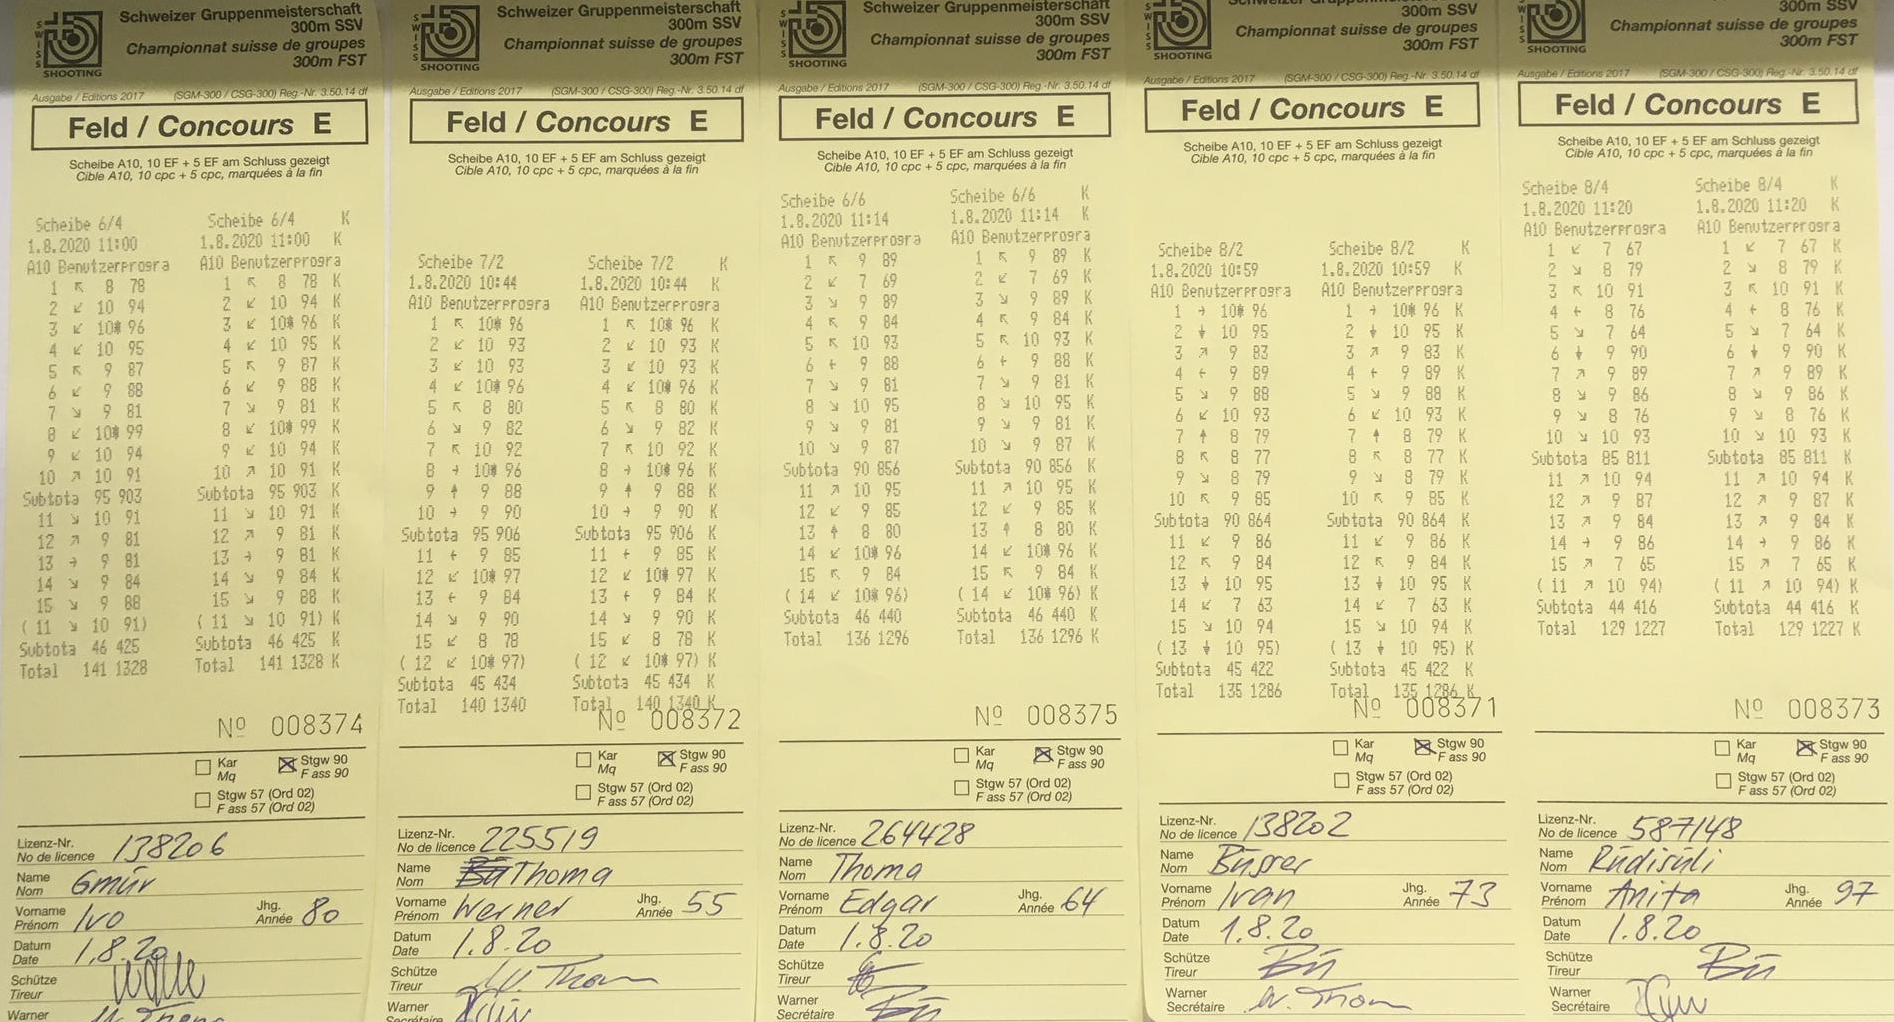 SWISS
SHOOTING
Schweizer Gruppenmeisterschaft
300m SSV
Championnat suisse de groupes
300m FST
Ausgabe / Editions 2017 (SGM-300 / CSG-300) Reg.-Nr. 3.50.14 df
Feld / Concours E
Scheibe A10, 10 EF + 5 EF am Schluss gezeigt
Cible A10, 10 cpc + 5 cpc, marquées à la fin
Scheibe 6/4 Scheibe 6/4 K
1.8.2020 11:00 1.8.2020 11:00 K
A10 Benutzerprogra A10 Benutzerprogra
1 ↖ 8 78 1 ↖ 8 78 K
2 ↙ 10 94 2 ↙ 10 94 K
3 ↙ 10* 96 3 ↙ 10* 96 K
4 ↙ 10 95 4 ↙ 10 95 K
5 ↖ 9 87 5 ↖ 9 87 K
6 ↙ 9 88 6 ↙ 9 88 K
7 ↘ 9 81 7 ↘ 9 81 K
8 ↙ 10* 99 8 ↙ 10* 99 K
9 ↙ 10 94 9 ↙ 10 94 K
10 ↗ 10 91 10 ↗ 10 91 K
Subtota 95 903 Subtota 95 903 K
11 ↘ 10 91 11 ↘ 10 91 K
12 ↗ 9 81 12 ↗ 9 81 K
13 → 9 81 13 → 9 81 K
14 ↘ 9 84 14 ↘ 9 84 K
15 ↘ 9 88 15 ↘ 9 88 K
( 11 ↘ 10 91) ( 11 ↘ 10 91) K
Subtota 46 425 Subtota 46 425 K
Total 141 1328 Total 141 1328 K
Nº 008374
Kar
Mq
Stgw 90
F ass 90
Stgw 57 (Ord 02)
F ass 57 (Ord 02)
Lizenz-Nr.
No de licence 138206
Name
Nom Gmür
Vorname
Prénom Ivo Jhg.
Année 80
Datum
Date 1.8.20
Schütze
Tireur
Warner
SHOOTING
Schweizer Gruppenmeisterschaft
300m SSV
Championnat suisse de groupes
300m FST
Ausgabe / Editions 2017 (SGM-300 / CSG-300) Reg.-Nr. 3.50.14 df
Feld / Concours E
Scheibe A10, 10 EF + 5 EF am Schluss gezeigt
Cible A10, 10 cpc + 5 cpc, marquées à la fin
Scheibe 7/2 Scheibe 7/2 K
1.8.2020 10:44 1.8.2020 10:44 K
A10 Benutzerprogra A10 Benutzerprogra
1 ↖ 10* 96 1 ↖ 10* 96 K
2 ↙ 10 93 2 ↙ 10 93 K
3 ↙ 10 93 3 ↙ 10 93 K
4 ↙ 10* 96 4 ↙ 10* 96 K
5 ↖ 8 80 5 ↖ 8 80 K
6 ↘ 9 82 6 ↘ 9 82 K
7 ↖ 10 92 7 ↖ 10 92 K
8 → 10* 96 8 → 10* 96 K
9 ↑ 9 88 9 ↑ 9 88 K
10 → 9 90 10 → 9 90 K
Subtota 95 906 Subtota 95 906 K
11 ← 9 85 11 ← 9 85 K
12 ↙ 10* 97 12 ↙ 10* 97 K
13 ← 9 84 13 ← 9 84 K
14 ↘ 9 90 14 ↘ 9 90 K
15 ↙ 8 78 15 ↙ 8 78 K
( 12 ↙ 10* 97) ( 12 ↙ 10* 97) K
Subtota 45 434 Subtota 45 434 K
Total 140 1340 Total 140 1340 K
Nº 008372
Kar
Mq
Stgw 90
F ass 90
Stgw 57 (Ord 02)
F ass 57 (Ord 02)
Lizenz-Nr.
No de licence 225519
Name
Nom Thoma
Vorname
Prénom Werner Jhg.
Année 55
Datum
Date 1.8.20
Schütze
Tireur W. Thoma
Warner
Secrétaire
SWISS
SHOOTING
Schweizer Gruppenmeisterschaft
300m SSV
Championnat suisse de groupes
300m FST
Ausgabe / Editions 2017 (SGM-300 / CSG-300) Reg.-Nr. 3.50.14 df
Feld / Concours E
Scheibe A10, 10 EF + 5 EF am Schluss gezeigt
Cible A10, 10 cpc + 5 cpc, marquées à la fin
Scheibe 6/6 Scheibe 6/6 K
1.8.2020 11:14 1.8.2020 11:14 K
A10 Benutzerprogra A10 Benutzerprogra
1 ↖ 9 89 1 ↖ 9 89 K
2 ↙ 7 69 2 ↙ 7 69 K
3 ↘ 9 89 3 ↘ 9 89 K
4 ↖ 9 84 4 ↖ 9 84 K
5 ↖ 10 93 5 ↖ 10 93 K
6 ← 9 88 6 ← 9 88 K
7 ↘ 9 81 7 ↘ 9 81 K
8 ↘ 10 95 8 ↘ 10 95 K
9 ↘ 9 81 9 ↘ 9 81 K
10 ↘ 9 87 10 ↘ 9 87 K
Subtota 90 856 Subtota 90 856 K
11 ↗ 10 95 11 ↗ 10 95 K
12 ↙ 9 85 12 ↙ 9 85 K
13 ↑ 8 80 13 ↑ 8 80 K
14 ↙ 10* 96 14 ↙ 10* 96 K
15 ↖ 9 84 15 ↖ 9 84 K
( 14 ↙ 10* 96) ( 14 ↙ 10* 96) K
Subtota 46 440 Subtota 46 440 K
Total 136 1296 Total 136 1296 K
Nº 008375
Kar
Mq
Stgw 90
F ass 90
Stgw 57 (Ord 02)
F ass 57 (Ord 02)
Lizenz-Nr.
No de licence 264428
Name
Nom Thoma
Vorname
Prénom Edgar Jhg.
Année 64
Datum
Date 1.8.20
Schütze
Tireur
Warner
Secrétaire Bü
SHOOTING
Schweizer Gruppenmeisterschaft
300m SSV
Championnat suisse de groupes
300m FST
Ausgabe / Editions 2017 (SGM-300 / CSG-300) Reg.-Nr. 3.50.14 df
Feld / Concours E
Scheibe A10, 10 EF + 5 EF am Schluss gezeigt
Cible A10, 10 cpc + 5 cpc, marquées à la fin
Scheibe 8/2 Scheibe 8/2 K
1.8.2020 10:59 1.8.2020 10:59 K
A10 Benutzerprogra A10 Benutzerprogra
1 → 10* 96 1 → 10* 96 K
2 ↓ 10 95 2 ↓ 10 95 K
3 ↗ 9 83 3 ↗ 9 83 K
4 ← 9 89 4 ← 9 89 K
5 ↘ 9 88 5 ↘ 9 88 K
6 ↙ 10 93 6 ↙ 10 93 K
7 ↑ 8 79 7 ↑ 8 79 K
8 ↖ 8 77 8 ↖ 8 77 K
9 ↘ 8 79 9 ↘ 8 79 K
10 ↖ 9 85 10 ↖ 9 85 K
Subtota 90 864 Subtota 90 864 K
11 ↙ 9 86 11 ↙ 9 86 K
12 ↖ 9 84 12 ↖ 9 84 K
13 ↓ 10 95 13 ↓ 10 95 K
14 ↙ 7 63 14 ↙ 7 63 K
15 ↘ 10 94 15 ↘ 10 94 K
( 13 ↓ 10 95) ( 13 ↓ 10 95) K
Subtota 45 422 Subtota 45 422 K
Total 135 1286 Total 135 1286 K
Nº 008371
Kar
Mq
Stgw 90
F ass 90
Stgw 57 (Ord 02)
F ass 57 (Ord 02)
Lizenz-Nr.
No de licence 138202
Name
Nom Büsser
Vorname
Prénom Ivan Jhg.
Année 73
Datum
Date 1.8.20
Schütze
Tireur Bü
Warner
Secrétaire W. Thoma
SHOOTING
300m SSV
Championnat suisse de groupes
300m FST
Ausgabe / Editions 2017 (SGM-300 / CSG-300) Reg.-Nr. 3.50.14 df
Feld / Concours E
Scheibe A10, 10 EF + 5 EF am Schluss gezeigt
Cible A10, 10 cpc + 5 cpc, marquées à la fin
Scheibe 8/4 Scheibe 8/4 K
1.8.2020 11:20 1.8.2020 11:20 K
A10 Benutzerprogra A10 Benutzerprogra
1 ↙ 7 67 1 ↙ 7 67 K
2 ↘ 8 79 2 ↘ 8 79 K
3 ↖ 10 91 3 ↖ 10 91 K
4 ← 8 76 4 ← 8 76 K
5 ↘ 7 64 5 ↘ 7 64 K
6 ↓ 9 90 6 ↓ 9 90 K
7 ↗ 9 89 7 ↗ 9 89 K
8 ↘ 9 86 8 ↘ 9 86 K
9 ↘ 8 76 9 ↘ 8 76 K
10 ↘ 10 93 10 ↘ 10 93 K
Subtota 85 811 Subtota 85 811 K
11 ↗ 10 94 11 ↗ 10 94 K
12 ↗ 9 87 12 ↗ 9 87 K
13 ↗ 9 84 13 ↗ 9 84 K
14 → 9 86 14 → 9 86 K
15 ↗ 7 65 15 ↗ 7 65 K
( 11 ↗ 10 94) ( 11 ↗ 10 94) K
Subtota 44 416 Subtota 44 416 K
Total 129 1227 Total 129 1227 K
Nº 008373
Kar
Mq
Stgw 90
F ass 90
Stgw 57 (Ord 02)
F ass 57 (Ord 02)
Lizenz-Nr.
No de licence 587148
Name
Nom Rüdisüli
Vorname
Prénom Anita Jhg.
Année 97
Datum
Date 1.8.20
Schütze
Tireur Bü
Warner
Secrétaire